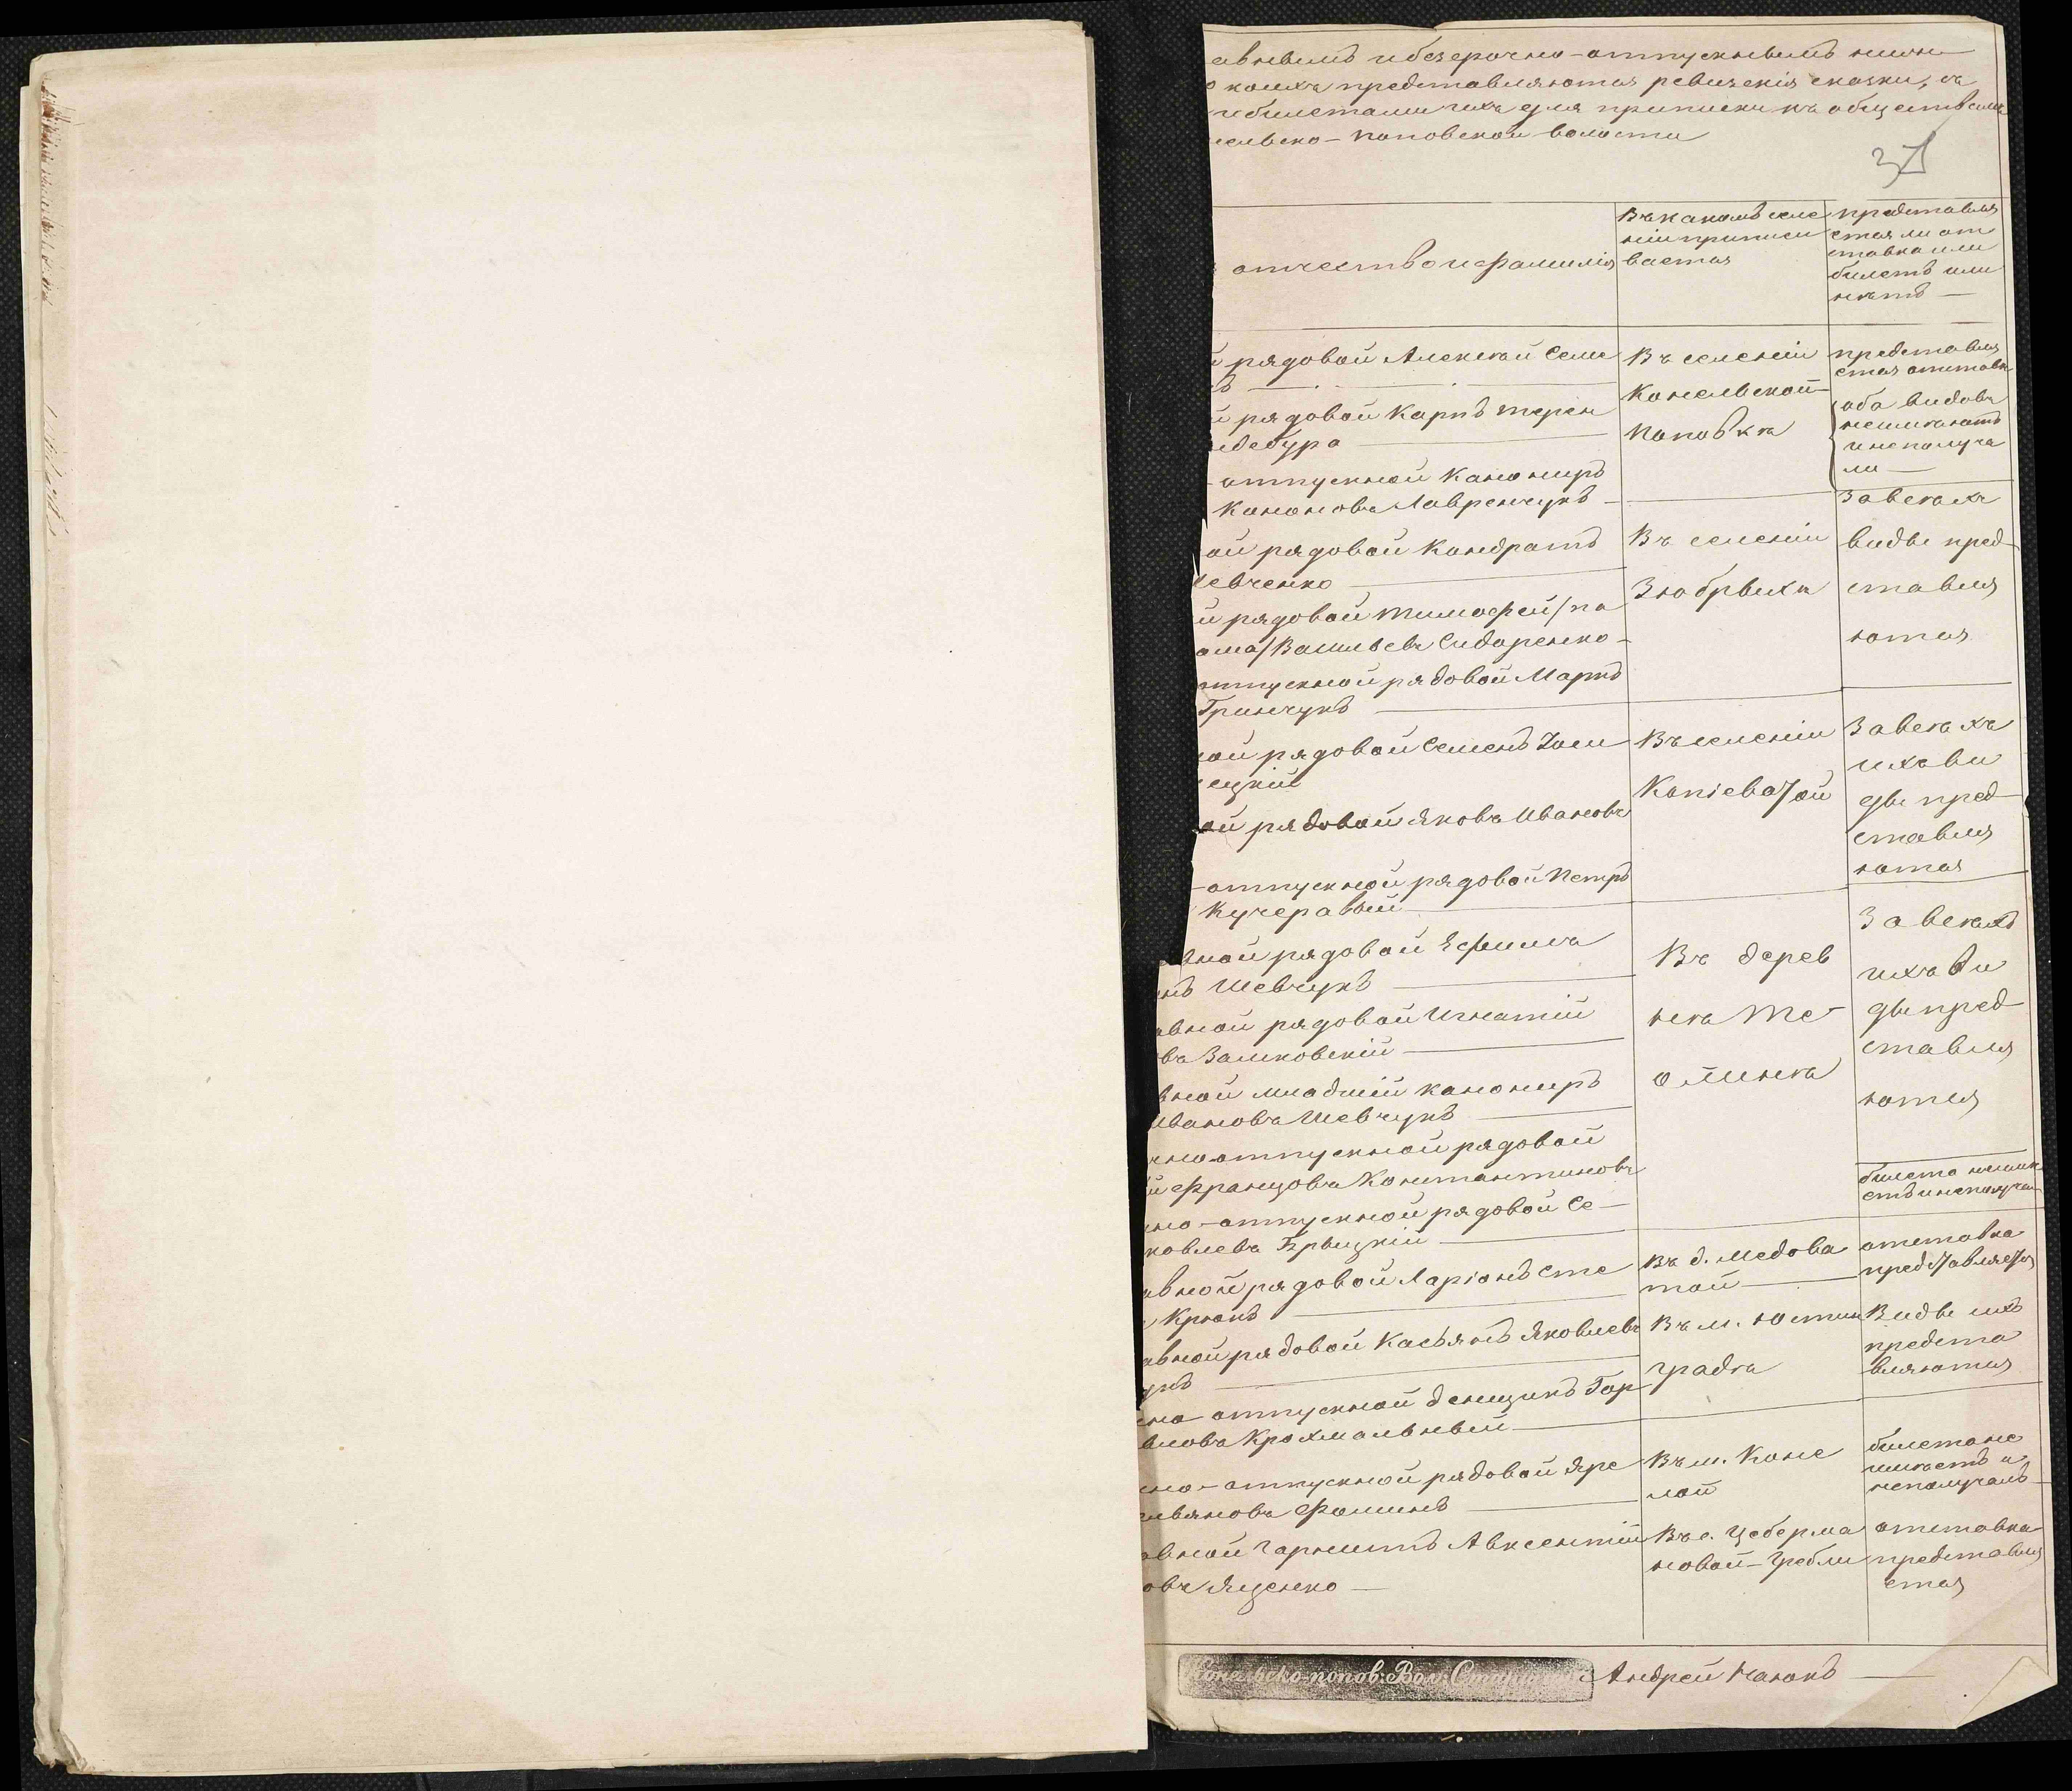 авнымъ и безсрочно-отпускнымъ нижн
о коихъ представляются ревизскія сказки, съ
и билетами ихъ для приписки къ обществамъ
нельско-Поповской волости
31
отчество и фамилія
Въ какомъ селе
ніи приписы
вается
представля
ется ли от
ставка или
билетъ или
нѣтъ —
й рядовой Алексѣй Семе
въ —
Въ селеніи
Конельской
Поповкѣ
представля
ется отставк
й рядовой Карпъ Терен
ндебура —
оба видовъ
неимѣютъ
и неполуча
ли —
-отпускной Канониръ
Кононовъ Лавренчукъ —
ой рядовой Кондратъ
евченко —
Въ селеніи
Зюбрыхѣ
За всѣхъ
виды пред
ставля
ются
й рядовой Тимофей /по
ома/ Васильевъ Сидоренко —
отпускной рядовой Маркъ
Гринчукъ —
ной рядовой Семенъ Иоси
ецкій
Въ селеніи
Копіеватой
За всѣхъ
ихъ ви
ды пред
ставля
ются
ой рядовой Яковъ Ивановъ
-отпускной рядовой Петръ
Кучеравый —
вной рядовой Ефимъ
нъ Шевчукъ —
Въ дерев
нѣ Те
олинѣ
За всѣхъ
ихъ ви
ды пред
ставля
ются
авной рядовой Игнатій
въ Замковскій —
вной младшій канониръ
Ивановъ Шевчукъ —
чно отпускной рядовой
й Францовъ Константиновъ
билета неимѣ
етъ и неполучал
но-отпускной рядовой Се
ковлевъ Брыцкій —
авной рядовой Ларіонъ Сте
Крюкъ —
въ д. Медова
той —
отставка
представляется
авной рядовой Касьянъ Яковлевъ
укъ —
Въ м. Юстин
градѣ
Виды ихъ
предста
вляются
но отпускной денщикъ Гор
вловъ Крохмальный —
но-отпускной рядовой Яре
мьяновъ Фоминъ —
Въ м. Коне
лой
билета не
имѣетъ и
неполучалъ
авной Гарнистъ Авксентій
овъ Яценко —
Въ с. Цеберма
новой-Гребли
отставка
представля
ется
Конельско-попов: Вол: Старшина Андрей